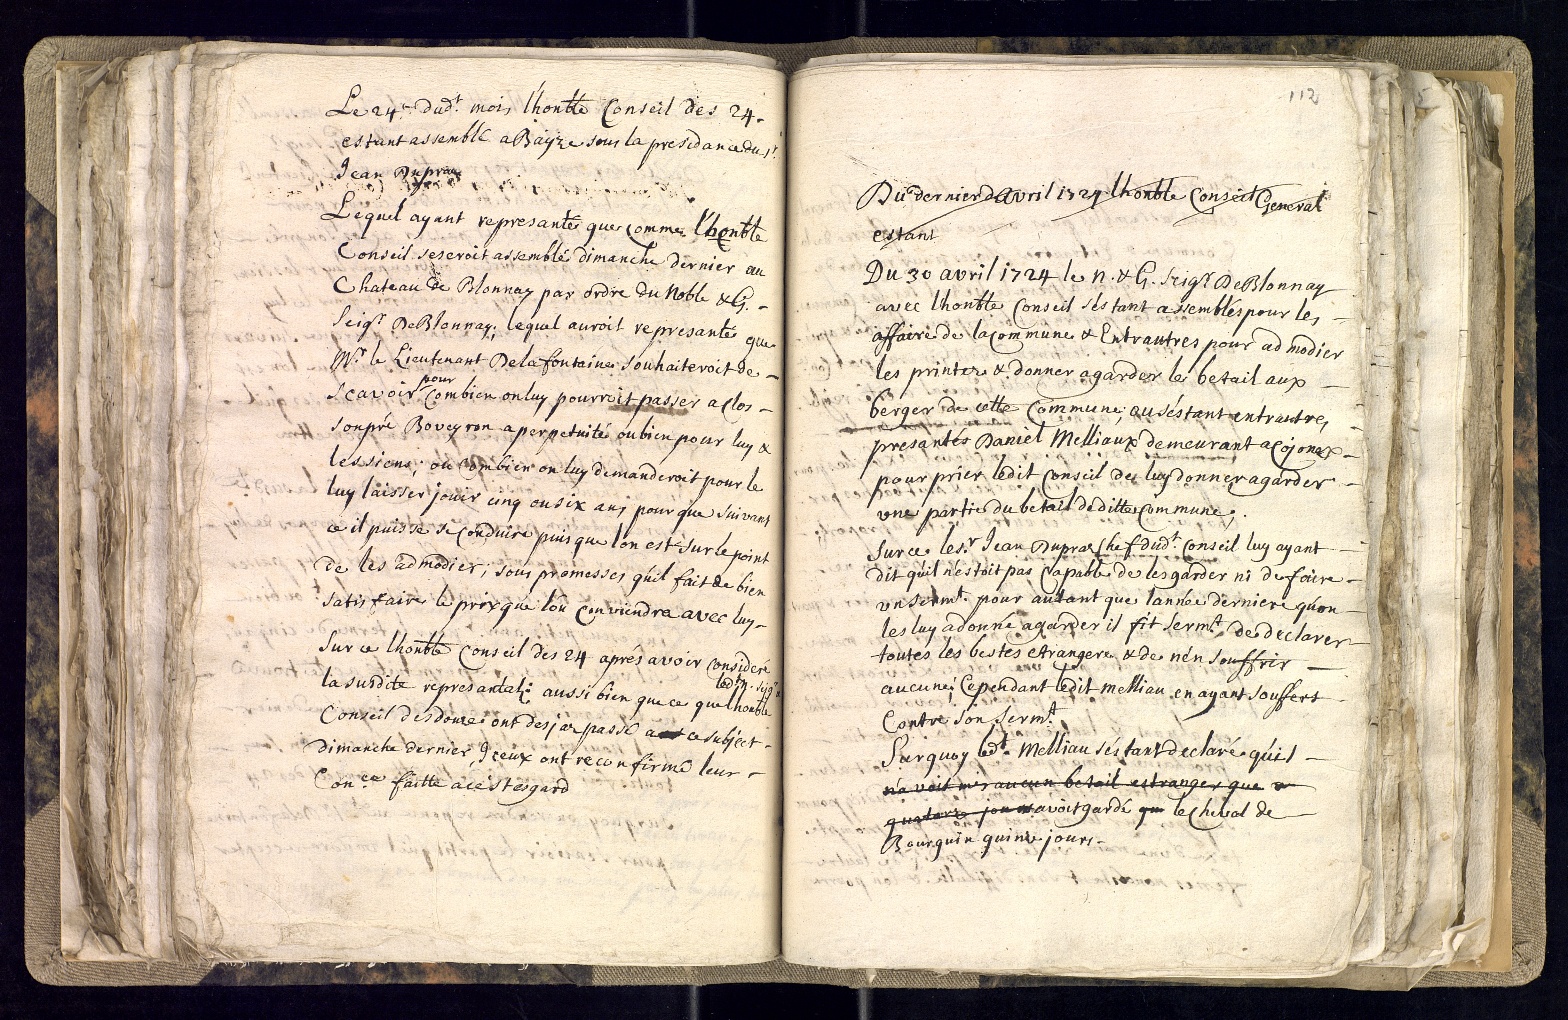 Le 24e dudt mois l'honble Conseil des 24
estant assemblé a Bayze sous la presidance du sr
Jean Duprau
Lequel ayant represanté que comme l'honble
Conseil se seroit assemblé dimanche dernier au
Chateau de Blonnay par ordre du Noble & G.
Seigr DeBlonnay; lequel auroit represanté que
Mr le Lieutenant Delafontaine souhaiteroit de
scavoir pour combien on luy pourroit passer a clos
son pré Boveyron a perpetuité ou bien pour luy &
les siens; ou combien on luy demanderoit pour le
luy laisser jouir cinq ou six ans pour que suivant
ce il puisse se conduire puis que l'on est sur le point
de les admodier; sous promesses qu'il fait de bien
satisfaire le prix que l'on conviendra avec luy
Sur ce l'honble Conseil des 24 aprés avoir consideré
la susdite represantatn: aussi bien que ce que ledt n. seigr & l'honble
Conseil des douze ont desja passé a ce subject
dimanche dernier, Iceux ont reconfirmé leur
Conce faitte a cest esgard
112
Du dernier d'Avril 1724 l'honble Conseil General
estant
Du 30 avril 1724 le n. & G. Seigr DeBlonnay
avec l'honble Conseil s'estant assemblés pour les
affaire de la commune & Entrautres pour admodier
les printze & donner a garder le betail aux
berger de cette Commune, au s'estant entrautre,
presantés Daniel Melliaux demeurant a Cojonex
pour prier ledit Conseil de luy donner a garder
une partie du betail de ditte Commune,
Sur ce le sr Jean Duprax Chef dudt Conseil luy ayant
dit qu'il n'estoit pas Capable de les garder ni de faire
un sermt pour autant que l'année derniere qu'on
les luy a donné a garder il fit sermt de declarer
toutes les bestes etrangere & de n'en souffrir
aucune, Cependant ledit melliau en ayant souffert
Contre son sermt
Surquoy ledt Melliau s'estant declaré qu'il
n'avoit mis aucun betail estranger que
quatorze jour avoit gardé que le Cheval de
Bourguin quinze jours